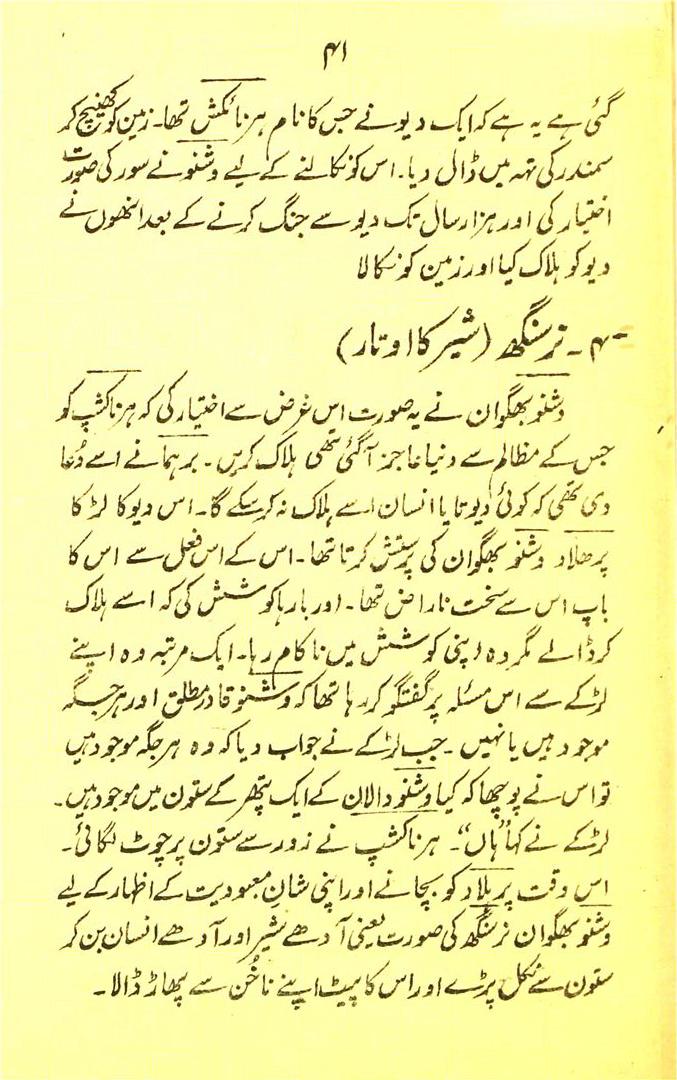 ۴۱
گئی ہے یہ ہے کہ ایک دیو نے جس کا نام ہرنائکش تھا۔ زمین کو کھینچ کر
سمندر کی تہہ میں ڈال دیا۔ اس کو نکالنے کے لیے وشنو نے سور کی صورت
اختیار کی اور ہزار سال تک دیو سے جنگ کرنے کے بعد انھوں نے
دیو کو ہلاک کیا اور زمین کو نکالا
۴۔ نرسنگھ (شیر کا اوتار)
وشنو بھگوان نے یہ صورت اس غرض سے اختیار کی کہ ہرناکشپ کو
جس کے مظالم سے دنیا عاجز آگئی تھی ہلاک کریں۔ برہما نے اسے دُعا
دی تھی کہ کوئی دیوتا یا انسان اسے ہلاک نہ کرسکے گا۔ اس دیو کا لڑکا
پرھلاد وشنو بھگوان کی پرستش کرتا تھا۔ اس کے اس فعل سے اس کا
باپ اس سے سخت ناراض تھا۔ اور بارہا کوشش کی کہ اسے ہلاک
کر ڈالے مگر وہ اپنی کوشش میں ناکام رہا۔ ایک مرتبہ وہ اپنے
لڑکے سے اس مسئلہ پر گفتگو کر رہا تھا کہ وشنو قادر مطلق اور ہر جگہ
موجود ہیں یا نہیں۔ جب لڑکے نے جواب دیا کہ وہ ہر جگہ موجود ہیں
تو اس نے پوچھا کہ کیا وشنو دالان کے ایک پتھر کے ستون میں موجود ہیں۔
لڑکے نے کہا "ہاں"۔ ہرناکشپ نے زور سے ستون پر چوٹ لگائی۔
اس وقت پرہلاد کو بچانے اور اپنی شانِ معبودیت کے اظہار کے لیے
وشنو بھگوان نرسنگھ کی صورت یعنی آدھے شیر اور آدھے انسان بن کر
ستون سے نکل پڑے اور اس کا پیٹ اپنے ناخُن سے پھاڑ ڈالا۔